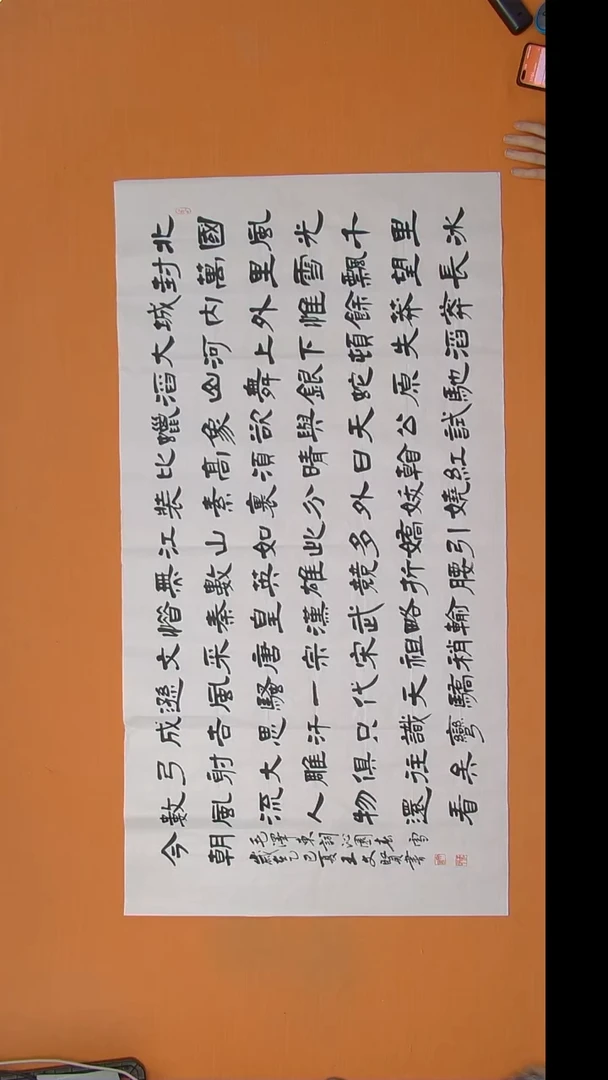 北國風光千里冰
封萬里雪飄望長
城內外惟餘莽莽
大河上下頓失滔
滔山舞銀蛇原馳
蠟象欲與天公試
比高須晴日看紅
裝素裹分外妖嬈
江山如此多嬌引
無數英雄競折腰
惜秦皇漢武略輸
文采唐宗宋祖稍
遜風騷一代天驕
成吉思汗只識彎
弓射大雕俱往矣
數風流人物還看
今朝
毛澤東詞沁園春雪
歲在乙巳夏王文賢書